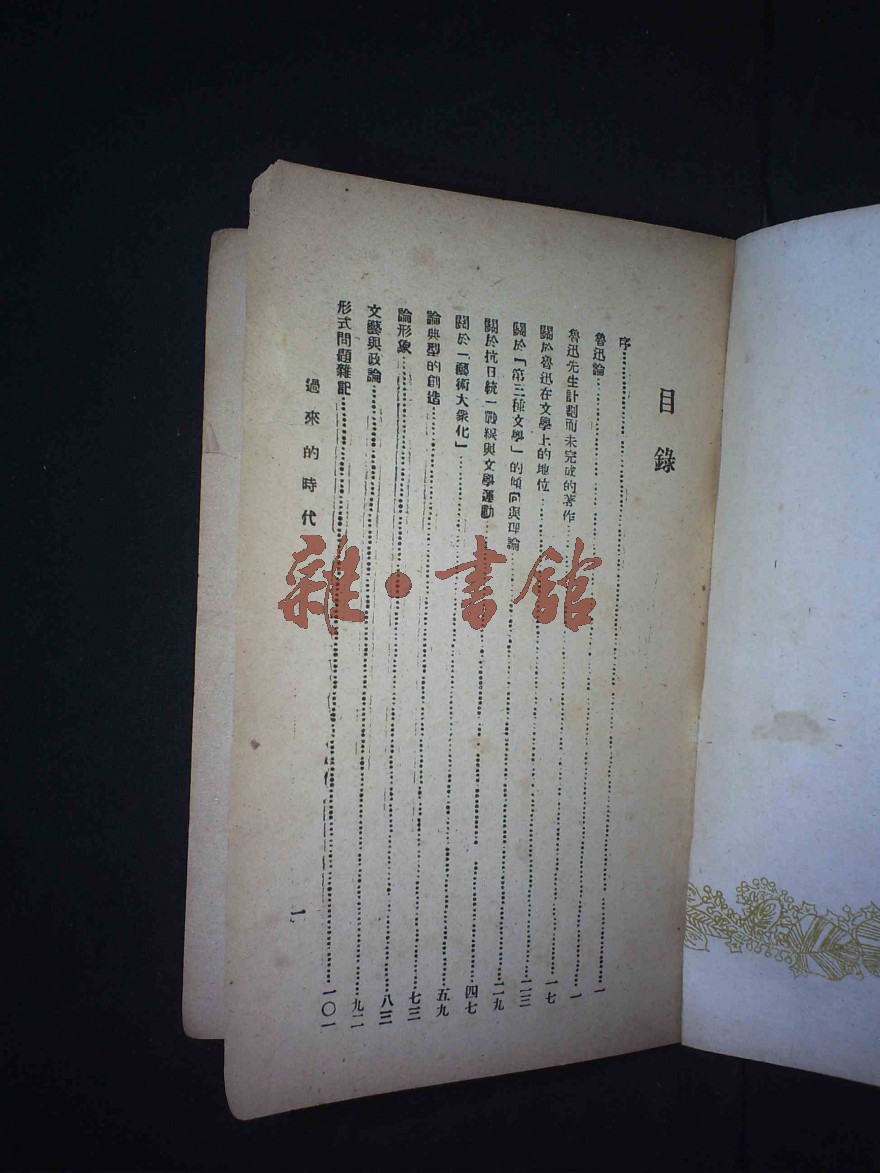 目錄
序……一
魯迅論……一
魯迅先生計劃而未完成的著作……一七
關於魯迅在文學上的地位……二三
關於「第三種文學」的傾向與理論……二九
關於抗日統一戰線與文學運動……四七
關於「藝術大衆化」……五九
論典型的創造……七三
論形象……八三
文藝與政論……九二
形式問題雜記……一〇一
過來的時代
一
雜·書館